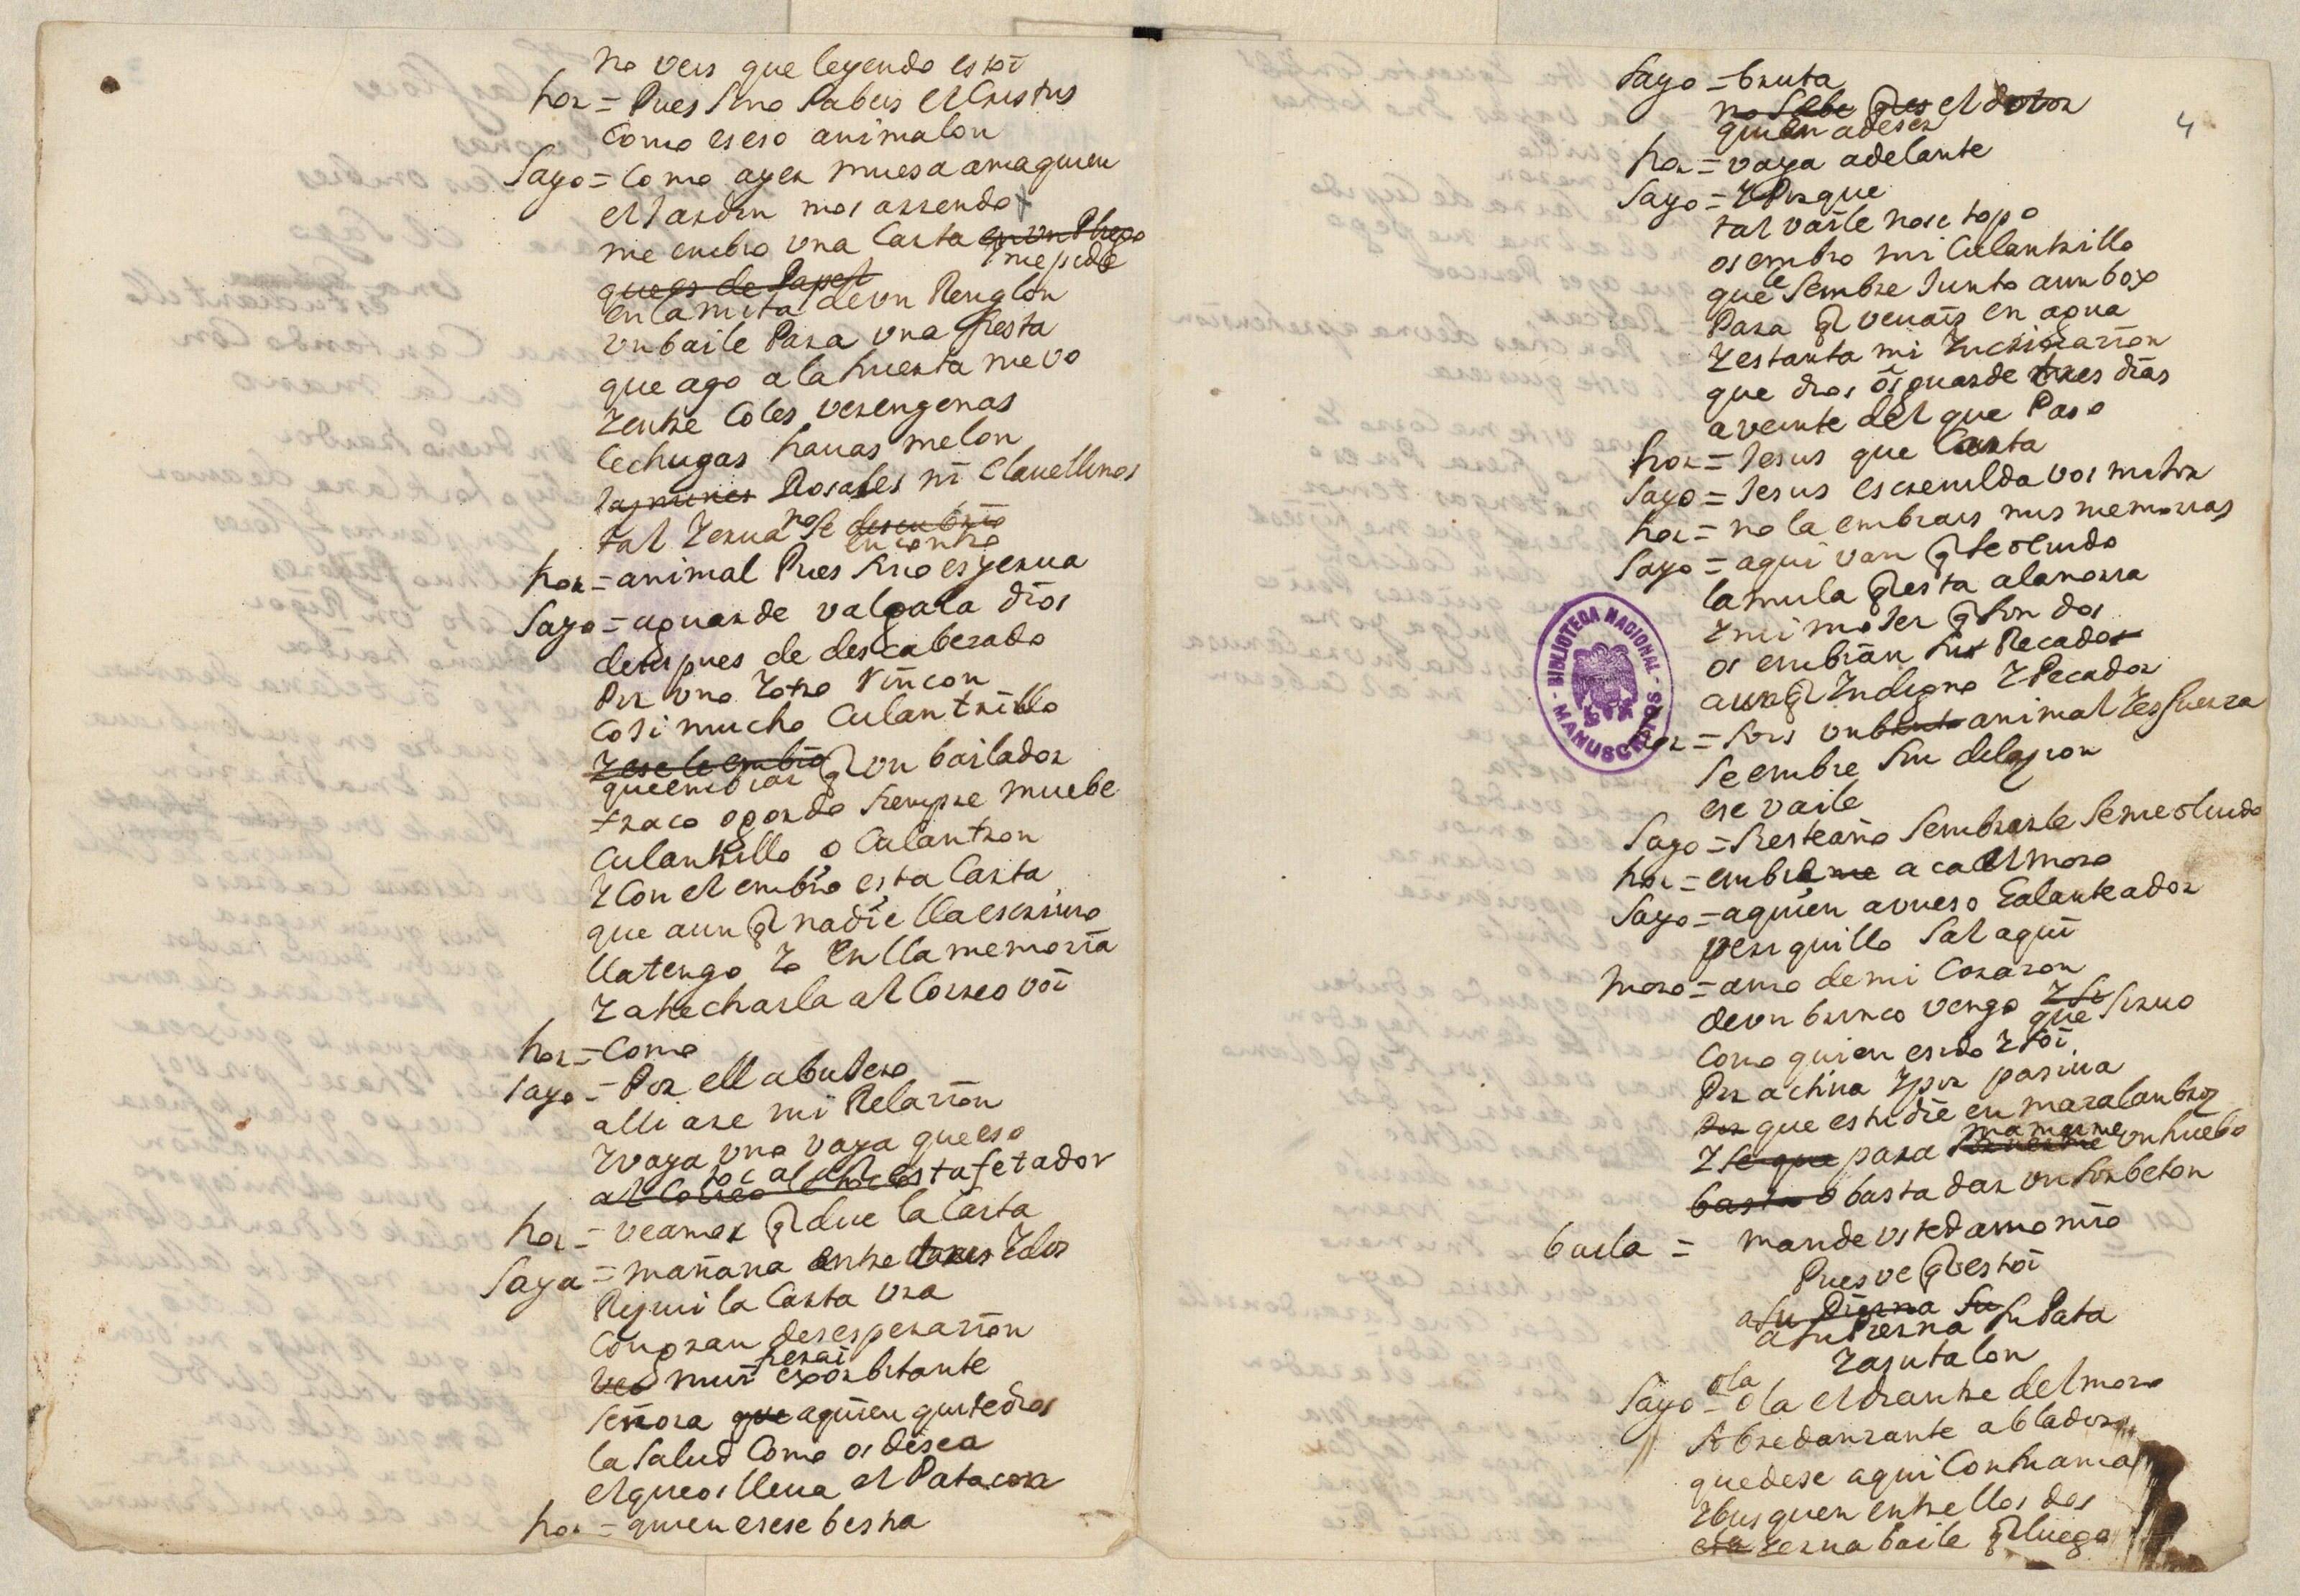 no veis que leyendo estoi
hor = Pues sino sabeis el Cristus
como es eso animalon
Sayo = Como ayer muesa ama quien
el Jardin mos arrendo
me embio una Carta en un pliego
me pide
que es de Papel
en la mita de un Renglon
un baile Para una fiesta
que ago a la huerta me vo
Y entre Coles verengenas
lechugas hauas melon
Jasmines Rosales ni Clauellinos
tal Yerua no se descubrio
encontro
hor = animal Pues sino es yerua
Sayo = aguarde valgala dios
despues de descaberado
Por uno Y otro rincon
Cosi mucho Culantrillo
Y ese le embio q un bailador
que embiar
flaco o gordo siempre muebe
Culantrillo o Culantron
Y Con el embio esta Carta
que aun q nadie lla escriuio
lla tengo Yo en lla memoria
Y a hecharla al Correo voi
hor = Como
Sayo = Por ell abujero
alli are mi Relarion
Y vaya uno vaya que eso
toca al
al Correo estafetador
hor = veamos q dice la Carta
Saya = mañana entre tres Y dos
Reciui la Carta vra
Con gran desesperarion
herai
veo mui exorbitante
Señora que a quien quite dios
la salud Como os desea
el que os lleua el Patacon
hor = quien es ese bestia
4
Sayo = bruta
no sebe ques el dotor
quien a de ser
hor = vaya adelante
Sayo = Y Porque
tal vaile no se topo
os embio mi Culantrillo
que le sembre Junto a un box
Para q venais en agua
Y estanta mi Yncrinarion
que dios os guarde tres dias
a veinte del que Paso
hor = Jesus que Carta
Sayo = Jesus escreuilda vos mihor
hor = no la embiais mis memorias
Sayo = aqui van q se oluido
la mula q esta a la noria
Y mi mojer q son dos
os embian sus Recados
aunq Yndigno Y Pecador
hor = sois un bruto animal Y es fuerza
se embie sin delazion
ese vaile
Sayo = Siesteaño sembrarle se me oluido
hor = embieme aca el moro
Sayo = a quien a vueso Galanteador
periquillo sal aqui
moro = amo de mi Corazon
de un brinco vengo Y si siruo
que
Como quien es do Y soi
Por activa Y por pasiua
Por que estudie en maralambroz
mamarme
Y se que para un huebo
basta o basta dar un sorbeton
baila = mande usted amo mio
Pues ve q estoi
a su Pierna su
a su Pierna su Pata
Y a su talon
ola
Sayo = ola el diantre del moro
Sobre danzante ablador
quedese aqui Con su ama
Y busquen entre llos dos
esa Yerua baile q luego
BIBLIOTECA NACIONAL
MANUSCRITOS